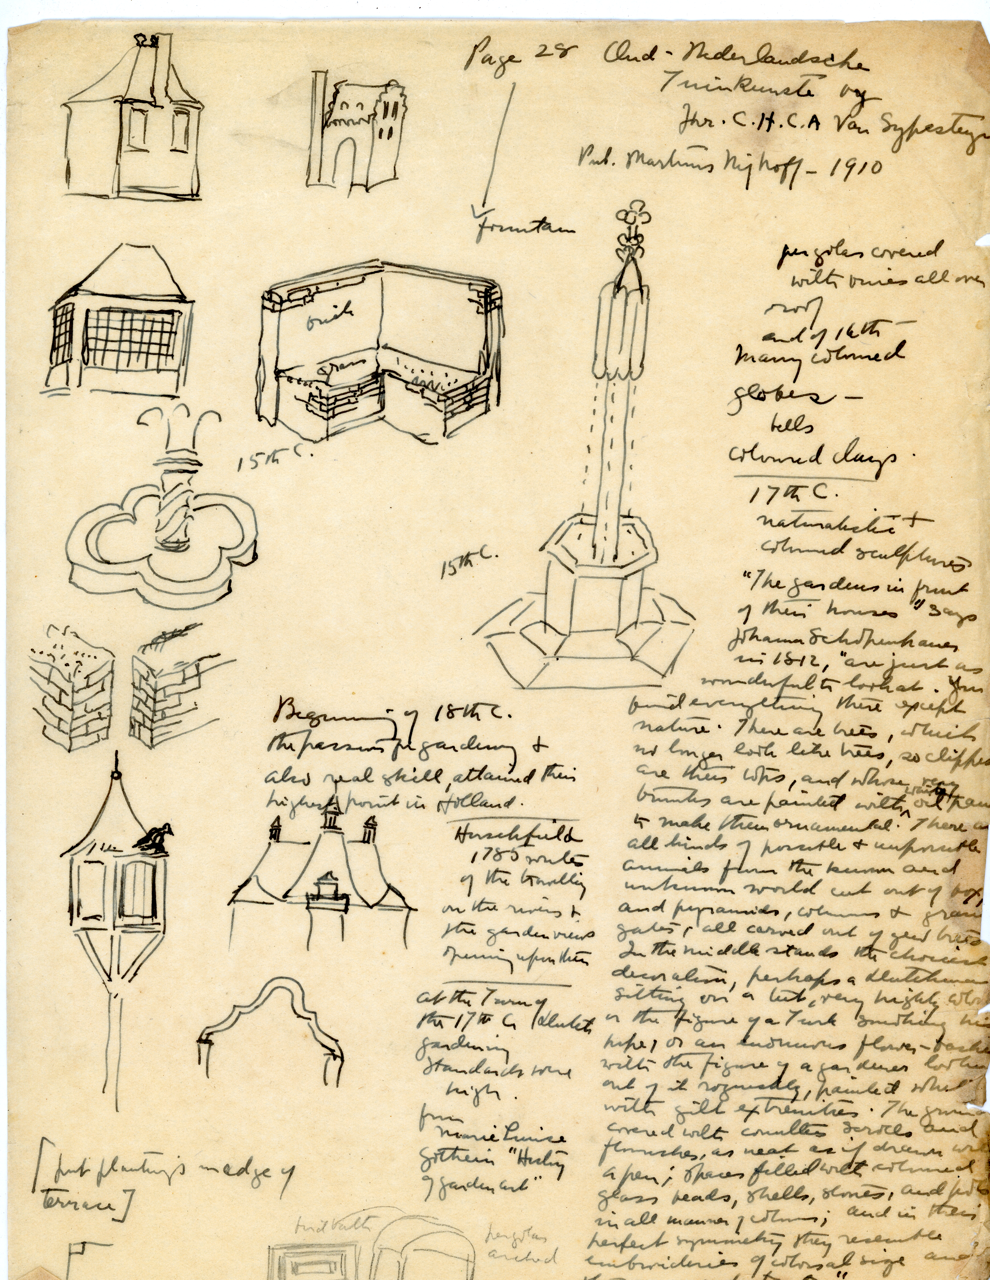 Page 28 Oud-Nederlandsche
Tuinkunste by
Jhr. C.H.C.A Van Sypesteyn
Pub. Martinus Nijhoff - 1910
fountain
pergolas covered
with vines all over
roof
end of 16th
Many coloured
globes -
bells
coloured clays.
17th C.
naturalistic +
coloured sculptures
"The gardens in front
of their houses" says
Johanna Schopenhauer
in 1812, "are just as
wonderful to look at. You
find everything there except
nature. There are trees, which
no longer look like trees, so clipped
are their tops, and whose very
trunks are painted with white oil paint
to make them ornamental. There are
all kinds of possible + impossible
animals from the known and
unknown world cut out of box,
and pyramids, columns + green
gates, all carved out of yew trees
In the middle stands the choicest
decoration, perhaps a Dutchman
sitting on a tub, very highly
or the figure of a Turk smoking his
pipe, or an enormous flower-basket
with the figure of a gardener looking
out of it roguishly, painted white
with gilt extremities. The ground
covered with countless scrolls and
flourishes, as neat as if drawn with
a pen; spaces filled with coloured
glass beads, shells, stones, and pots
in all manner of colours; and in their
perfect symmetry they resemble
embroideries of colossal size and
brick
grass
15th C.
15th C.
Beginning of 18th C.
the passion for gardening +
also real skill, attained their
highest point in Holland.
Hirschfeld
1785 writes
of the
on the rivers +
the garden views
opening upon them
At the Turn of
the 17th C. Dutch
gardening
standards were
high.
from
Marie Luise
Gothein "History
of garden art"
[put plantings on edge of
terrace]
pergolas
arched